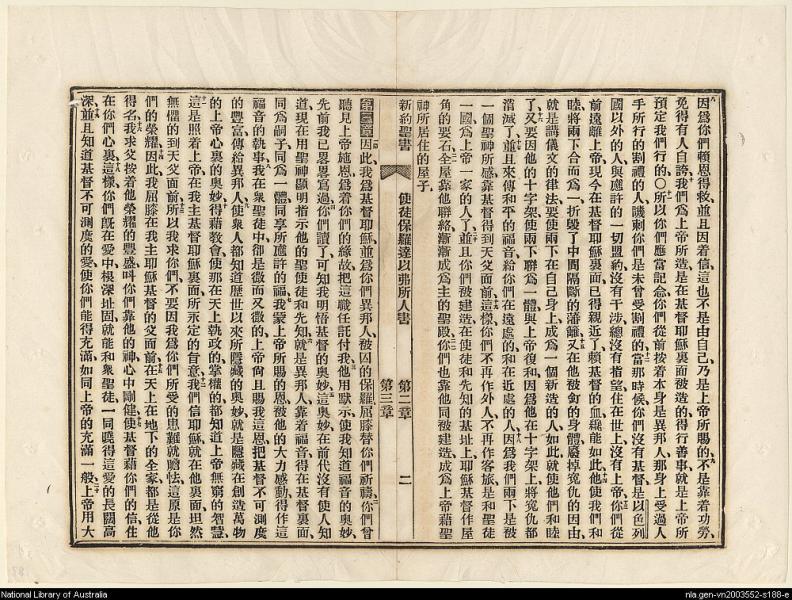 因爲你們頼恩得救並且因着信這也不是由自己乃是上帝所賜的不是靠着功勞
免得有人自誇我們爲上帝所造是在基督耶穌裏面被造的得行善事就是上帝所
預定我們行的〇所以你們應當記念你們從前按着本身是異邦人那身上受過人
手所行的割禮的人譏刺你們是未曾受割禮的當那時候你們沒有基督是以色列
國以外的人與應許的一切盟約沒有干涉總沒有指望住在世上沒有上帝你們從
前遠離上帝現今在基督耶穌裏面已得親近了賴基督的血纔能如此他使我們和
睦將兩下合而爲一折毀了中間隔斷的籓籬又在他被釘的身體廢掉寃仇的因由
就是講儀文的律法要使兩下在自己身上成爲一個新造的人如此就使他們和睦
了又要因他的十字架使兩下聯爲一體與上帝復和因爲他在十字架上將寃仇都
消滅了並且來傳和平的福音給你們在遠處的和在近處的人因爲我們兩下是被
一個聖神所感靠基督得到天父面前這樣你們不再作外人不再作客旅是和聖徒
一國爲上帝一家的人了並且你們被建造在使徒和先知的基址上耶穌基督作屋
角的要石全屋靠他聯絡漸漸成爲主的聖殿你們也靠他同被建造成爲上帝藉聖
神所居住的屋子
新約聖書 使徒保羅達以弗所人書 第二章 第三章 二
因此我爲基督耶穌並爲你們異邦人被囚的保羅屈膝替你們祈禱你們曾
聽見上帝施恩爲着你們的緣故把這職任託付我他用默示使我知道福音的奧妙
先前我已畧畧寫過你們讀了可知我明悟基督的奧妙這奧妙在前代沒有使人知
道現在用聖神顯明指示他的聖使徒和先知就是異邦人靠着福音得在基督裏面
同爲嗣子同爲一體同享所應許的福我蒙上帝所賜的恩被他的大力感動得作這
福音的執事我在衆聖徒中卻是微而又微的上帝尙且賜我這恩把基督不可測度
的豐富傳給異邦人使衆人都知道歷世以來所隱藏的奧妙就是隱藏在創造萬物
的上帝心裏的奧妙得藉敎會使那在天上執政的掌權的都知道上帝無窮的智慧
這是照着上帝在我主基督耶穌裏面所永定的旨意我們信耶穌就在他裏面坦然
無懼的到天父面前所以我求你們不要因我爲你們所受的患難就膽怯這原是你
們的榮耀因此我屈膝在我主耶穌基督的父面前在天上在地下的全家都是從他
得名我求父按着他榮耀的豐盛叫你們靠他的神心中剛健使基督藉你們的信住
在你們心裏這樣你們旣在愛中根深址固就能和衆聖徒一同曉得這愛的長闊高
深並且知道基督不可測度的愛使你們能得充滿如同上帝的充滿一般上帝用大
National Library of Australia
nla.gen-vn2003552-s188-e